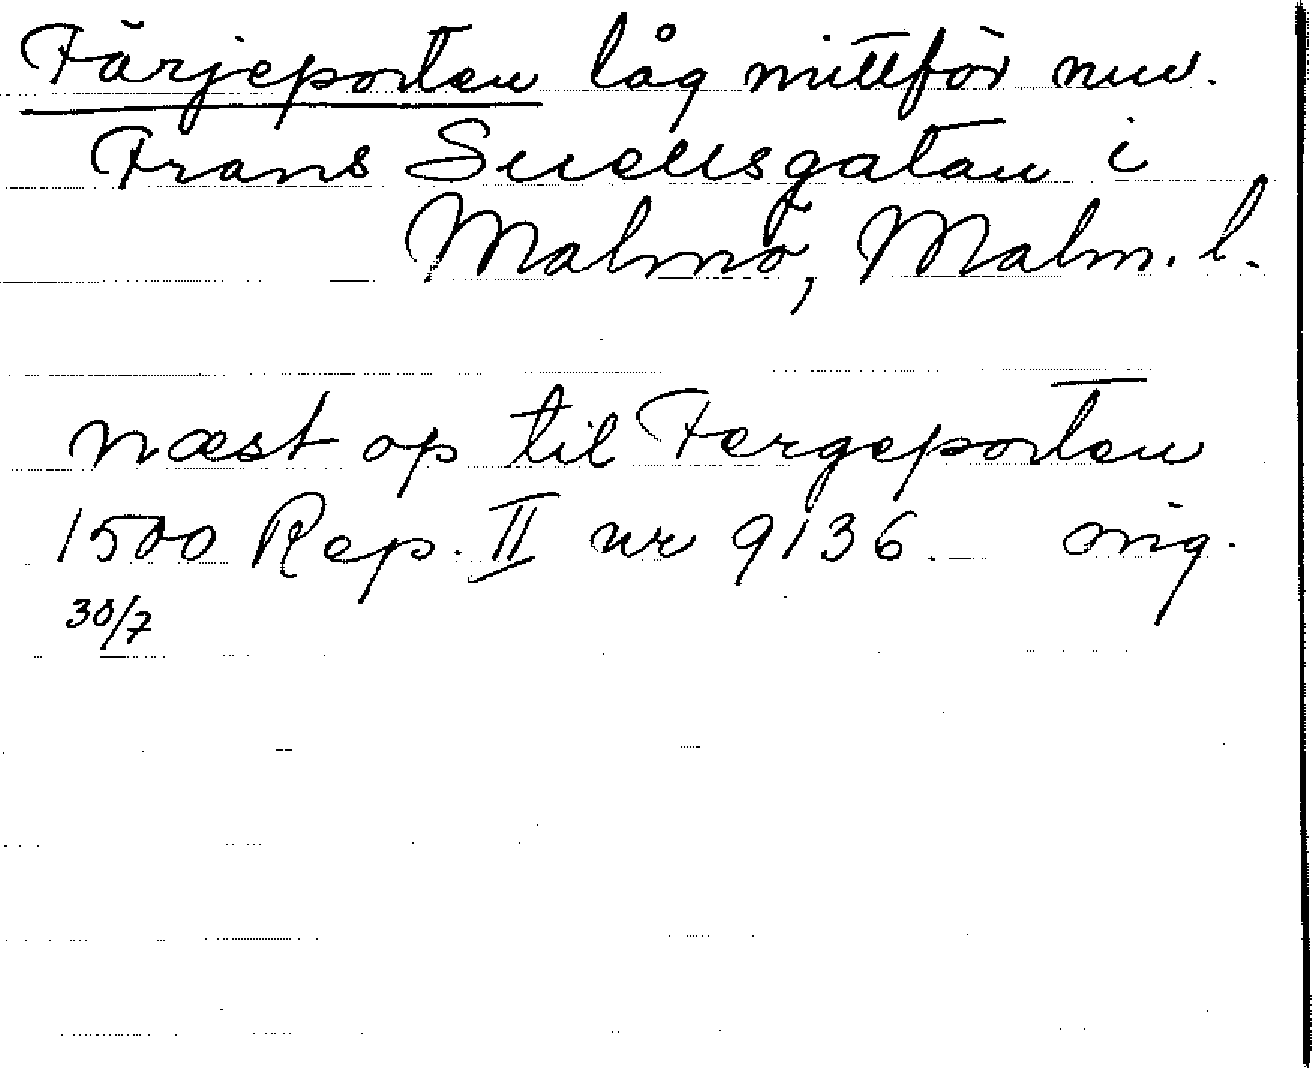 Färjeporten låg mittför nuv.
Frans Suellsgatan i
Malmö, Malm. l.
næst op til Fergeporten
1500 Rep. II nr 9136. orig.
30/7